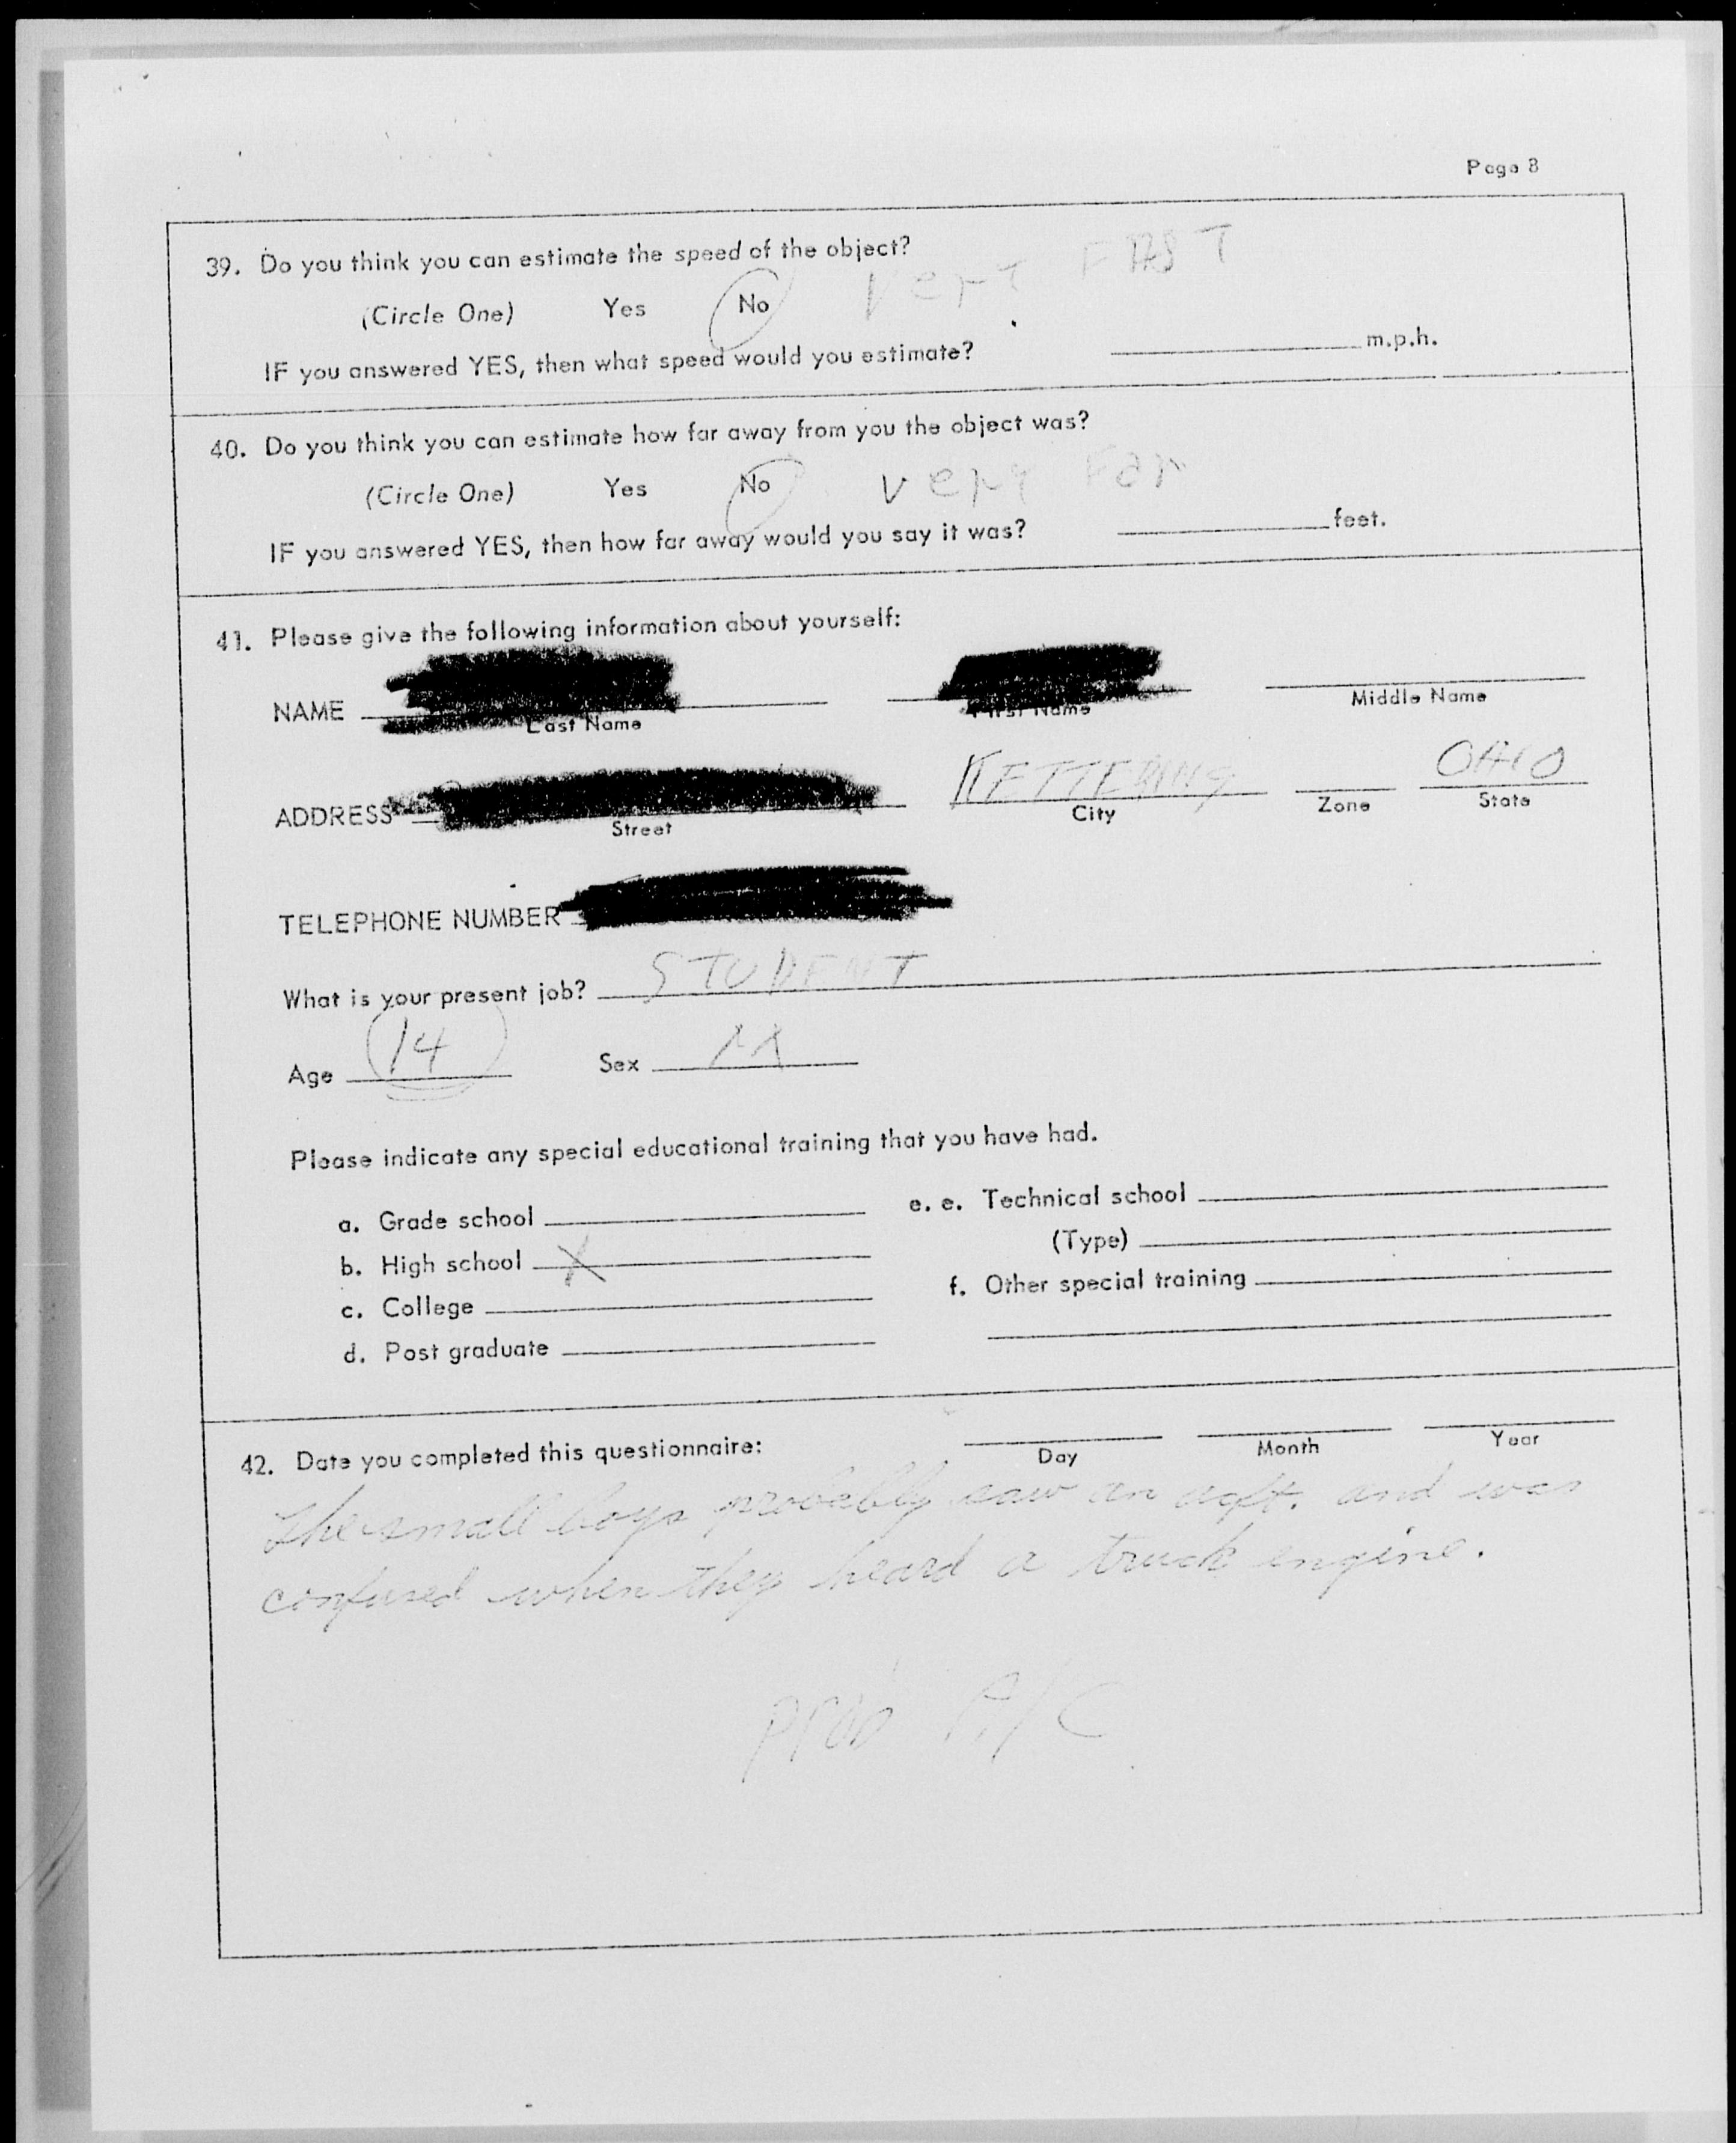 Page 8
39. Do you think you can estimate the speed of the object?
(Circle One) Yes No Very FAST
IF you answered YES, then what speed would you estimate? m.p.h.
40. Do you think you can estimate how far away from you the object was?
(Circle One) Yes No very Far
IF you answered YES, then how far away would you say it was? feet.
41. Please give the following information about yourself:
NAME
Last Name First Name Middle Name
ADDRESS KETTERING OHIO
Street City Zone State
TELEPHONE NUMBER
What is your present job? STUDENT
Age 14 Sex M
Please indicate any special educational training that you have had.
a. Grade school
b. High school X
c. College
d. Post graduate
e. e. Technical school
(Type)
f. Other special training
42. Date you completed this questionnaire:
Day Month Year
The small boys probably saw an acft. and was
confused when they heard a truck engine.
prob A/C